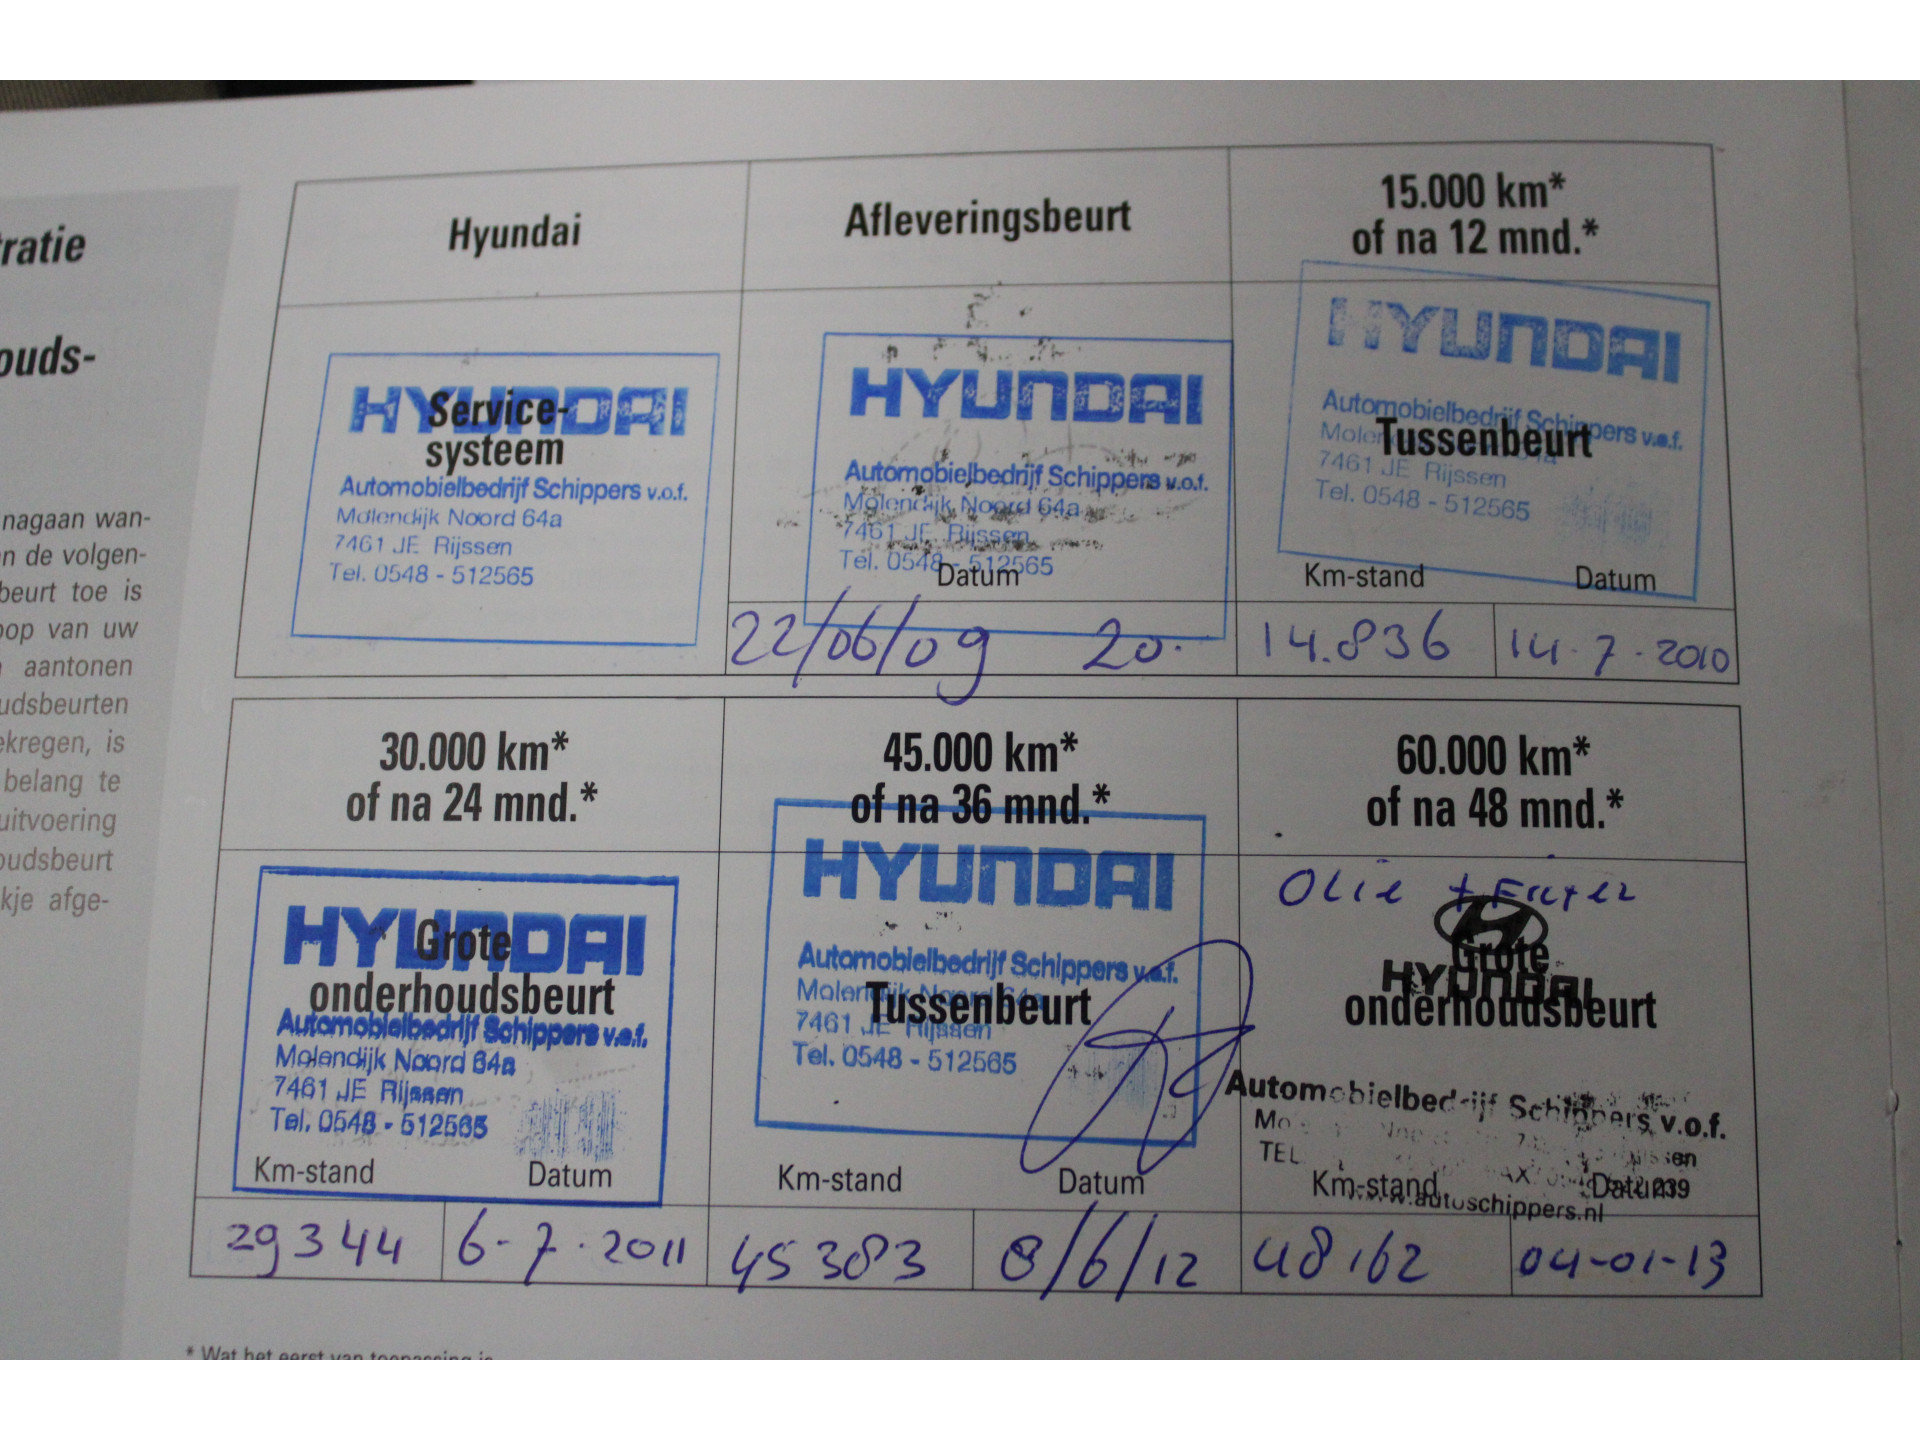 ratie
ouds-
nagaan wan-
n de volgen-
beurt toe is
oop van uw
aantonen
udsbeurten
ekregen, is
belang te
uitvoering
oudsbeurt
kje afge-
Hyundai
HYUNDAI
Service-
systeem
Automobielbedrijf Schippers v.o.f.
Molendijk Noord 64a
7461 JE Rijssen
Tel. 0548 - 512565
Afleveringsbeurt
HYUNDAI
Automobielbedrijf Schippers v.o.f.
Molendijk Noord 64a
7461 JE Rijssen
Tel. 0548 - 512565
Datum
22/06/09 20.
15.000 km*
of na 12 mnd.*
HYUNDAI
Automobielbedrijf Schippers v.o.f.
Tussenbeurt
7461 JE Rijssen
Tel. 0548 - 512565
Km-stand Datum
14.836 14.7.2010
30.000 km*
of na 24 mnd.*
HYUNDAI
Grote
onderhoudsbeurt
Automobielbedrijf Schippers v.o.f.
Molendijk Noord 64a
7461 JE Rijssen
Tel. 0548 - 512565
Km-stand Datum
29344 6-7.2011
45.000 km*
of na 36 mnd.*
HYUNDAI
Automobielbedrijf Schippers v.o.f.
Molendijk Noord 64a
Tussenbeurt
7461 JE Rijssen
Tel. 0548 - 512565
Km-stand Datum
45383 8/6/12
60.000 km*
of na 48 mnd.*
Olie + Filter
Grote
HYUNDAI
onderhoudsbeurt
Automobielbedrijf Schippers v.o.f.
TEL
Km-stand Datum
www.autoschippers.nl
48162 04-01-13
* Wat het eerst van toepassing is